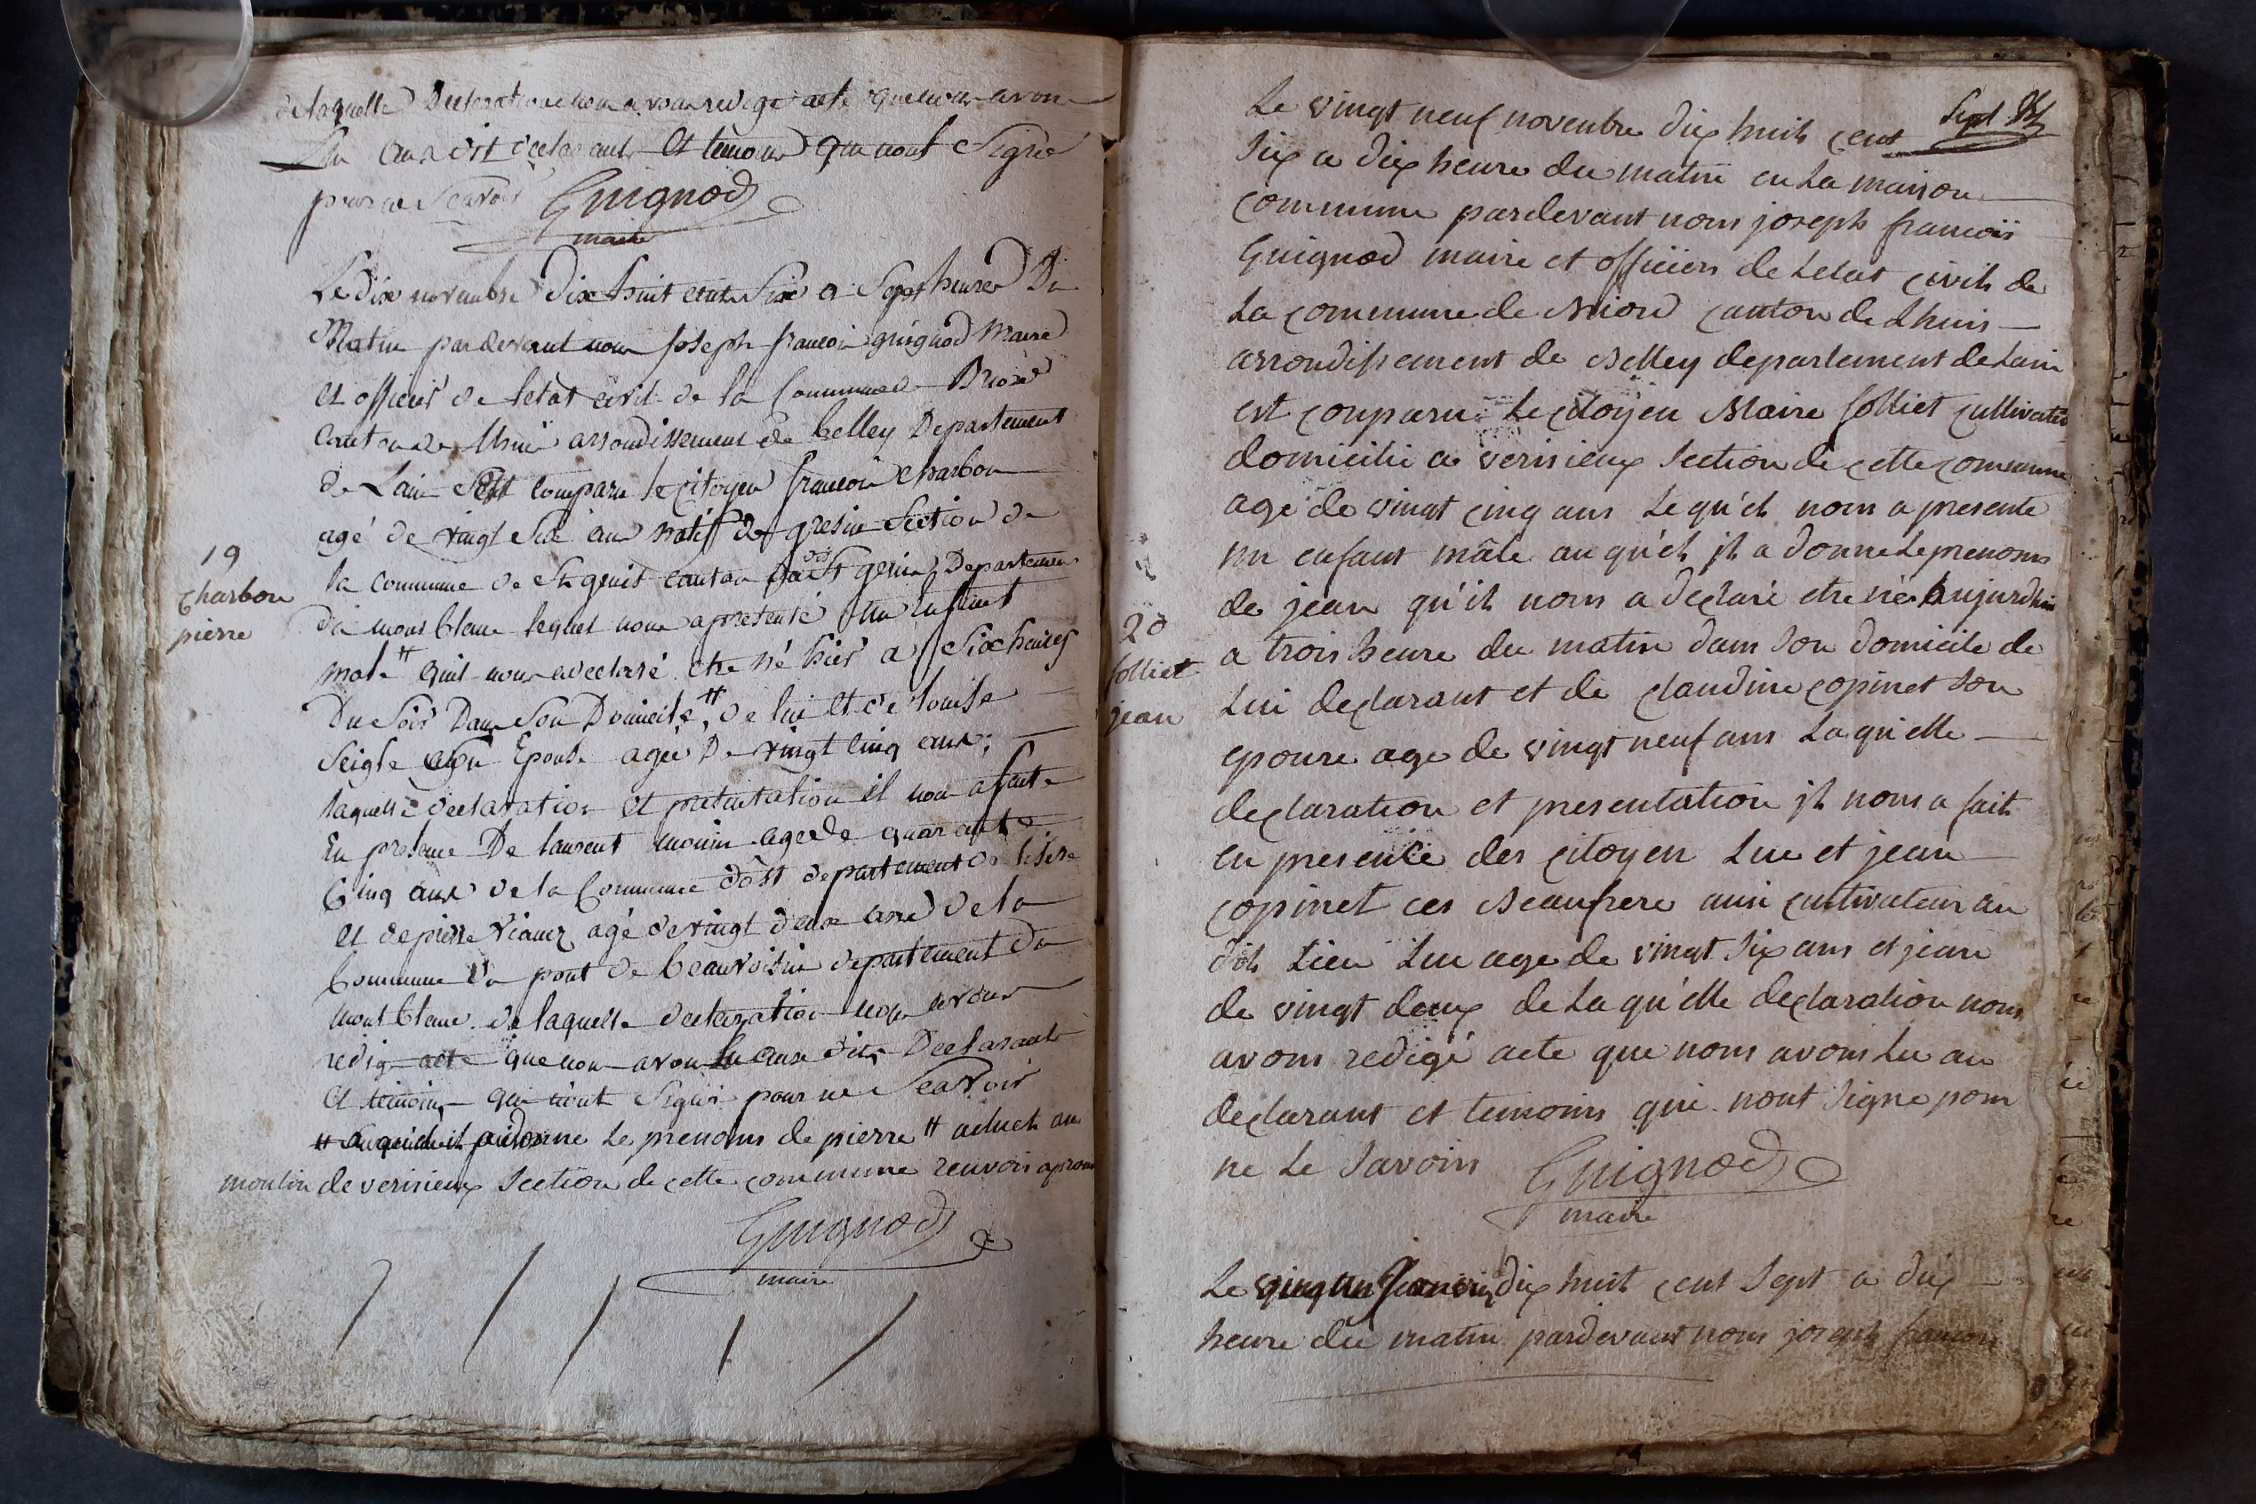 de laquelle Declaration nous avons redigé acte que nous avons
Lu aux dit declarants et temoins qui nont Signé
pour ne Scavoir Guignod
maire
Le dix novembre dix huit cent Six a Sept heures Du
Matin pardevant nous joseph francois guignod Maire
et officier de letat civil de la Commune de Briord
Canton de Lhuis arrondissement de belley Departement
de Lain Est comparu le citoyen francois charbon
agé de vingt Six ans natif de gresin Section de
la commune de St genis canton de St genix Departement
19
charbon
pierre
du mont blanc lequel nous a presenté un enfant
male # quil nous a declaré etre né hier a Six heures
Du Soir Dans Son Domicile # de lui et de louise
Seigle son Epouse agée De vingt cinq ans,
laquelle declaration et presentation il nous a faite
En presence De laurent monin agé de quarante
Cinq ans de la Commune dost departement de lisere
et de pierre agé de vingt deux ans de la
Commune du pont de beauvoisin departement du
mont blanc de laquelle declaration nous avons
redigé acte que nous avons lu aux dits Declarant
et temoins qui nont Signé pour ne Scavoir
# au quel il a donne le prenoms de pierre # actuel au
moulin de verisieux Section de cette commune renvoi aprouvé
Guignod
maire
Sept
Le vingt neuf novembre dix huit cent
Six a dix heure du matin en La maison
commune pardevant nous joseph francois
Guignod maire et officiers de Letat civils de
La commune de Briord canton de Lhuis
arrondissement de Belley departement de Lain
est comparu Le citoyen Blaire folliet cultivateur
domicilie a verisieux Section de cette commune
age de vingt cinq ans Le qu'el nous a presente
un enfant mâle au qu'el jl a donne Le prenoms
de jean qu'il nous a declaré etre né aujurdhui
20
folliet
jean
a trois heure du matin dans Son domicile de
Lui declarant et de claudine copinet Son
epouse age de vingt neuf ans La qu'elle
declaration et presentation jl nous a fait
en presence des citoyen Luc et jean
copinet ces Beaufrere ausi cultivateur au
dit Lieu Luc age de vingt six ans et jean
de vingt deux de La qu'elle declaration nous
avons redigé acte que nous avons Lu au
declarant et temoins qui nont signe pour
ne Le Savoir Guignod
maire
Le vingt un janvier dix huit cent Sept a dix
heure du matin pardevant nous joseph francois